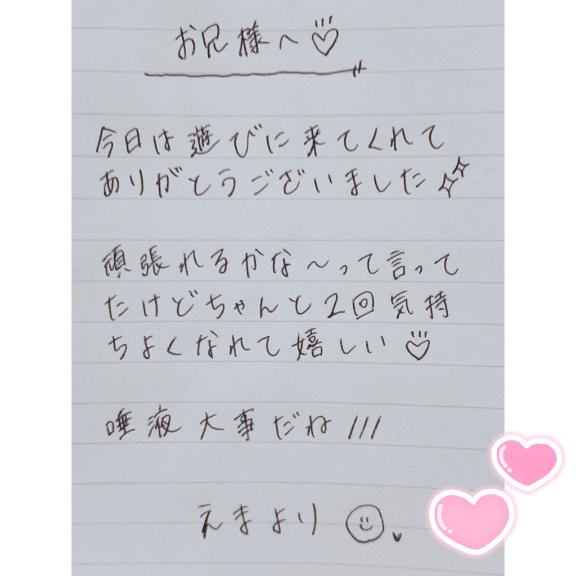 お兄様へ♡
今日は遊びに来てくれて
ありがとうございました✨
頑張れるかな〜って言って
たけどちゃんと2回気持
ちよくなれて嬉しい♡
唾液大事だね///
えまより☺